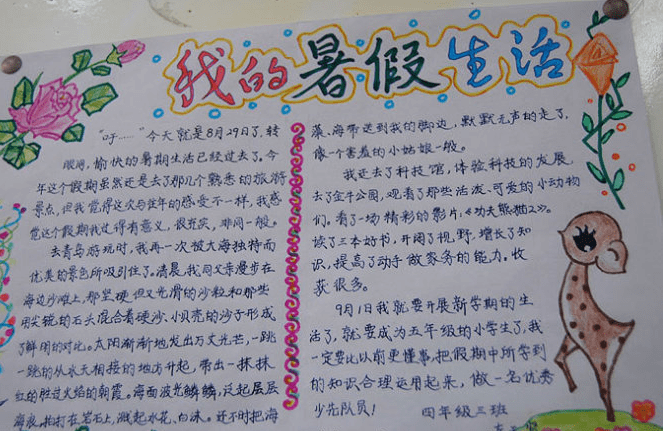 我的暑假生活
"吁……"今天就是8月29日了,转
眼间,愉快的暑期生活已经过去了。今
年这个假期虽然还是去了那几个熟悉的旅游
景点,但我觉得这次与往年的感受不一样,我感
觉这个假期我过得有意义、很充实,非同一般。
去青岛游玩时,我再一次被大海独特而
优美的景色所吸引住了。清晨,我同父亲漫步在
海边沙滩上,那坚硬但又光滑的沙粒和那些
用尖锐的石头混合着硬沙、小贝壳的沙子形成
了鲜明的对比。太阳渐渐地发出万丈光芒,一跳
一跳的从水天相接的地方升起,带出一抹抹
红的胜过火焰的朝霞。海面波光鳞鳞,泛起层层
海浪,拍打在岩石上,溅起水花、白沫。还不时把海
藻、海带送到我的脚边,默默无声的走了,
像一个害羞的小姑娘一般。
我还去了科技馆,体验科技的发展,
去了金牛公园,观看了那些活泼、可爱的小动物
们,看了一场精彩的影片,《功夫熊猫2》。
读了三本好书,开阔了视野,增长了知
识,提高了动手做家务的能力,收
获很多。
9月1日我就要开展新学期的生
活了,就要成为五年级的小学生了,我
一定要比以前更懂事,把假期中所学到
的知识合理运用起来,做一名优秀
少先队员!
四年级三班